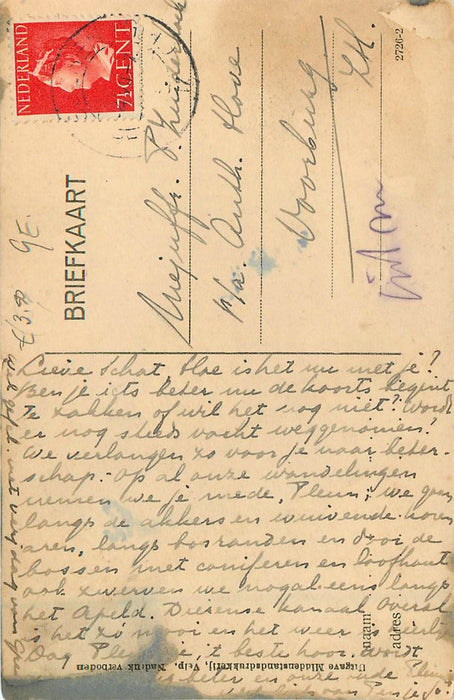 NEDERLAND
7½ CENT
BRIEFKAART
2726-2
Mejuffr. P. Kuiper
p/a. Anth. Hove
Voorburg
ZH.
naam
adres
Uitgave Middenstandsdrukkerij, Velp. Nadruk verboden
Lieve Schat, Hoe is het nu met je?
Ben je iets beter nu de koorts begint
te zakken of wil het nog niet? Wordt
er nog steeds vocht weggenomen?
We verlangen zo voor je naar beter-
schap. - Op al onze wandelingen
nemen we je mede, Pleun, we gaan
langs de akkers en wuivende koren
aren, langs bosranden en door de
bossen met coniferen en loofhout
ook zwerven we nog al eens langs
het Apeld. Dierense kanaal, overal
is het zo mooi en het weer is heerlijk
Dag Pleuntje, 't beste hoor. Wordt
beter en onze oude Pleun